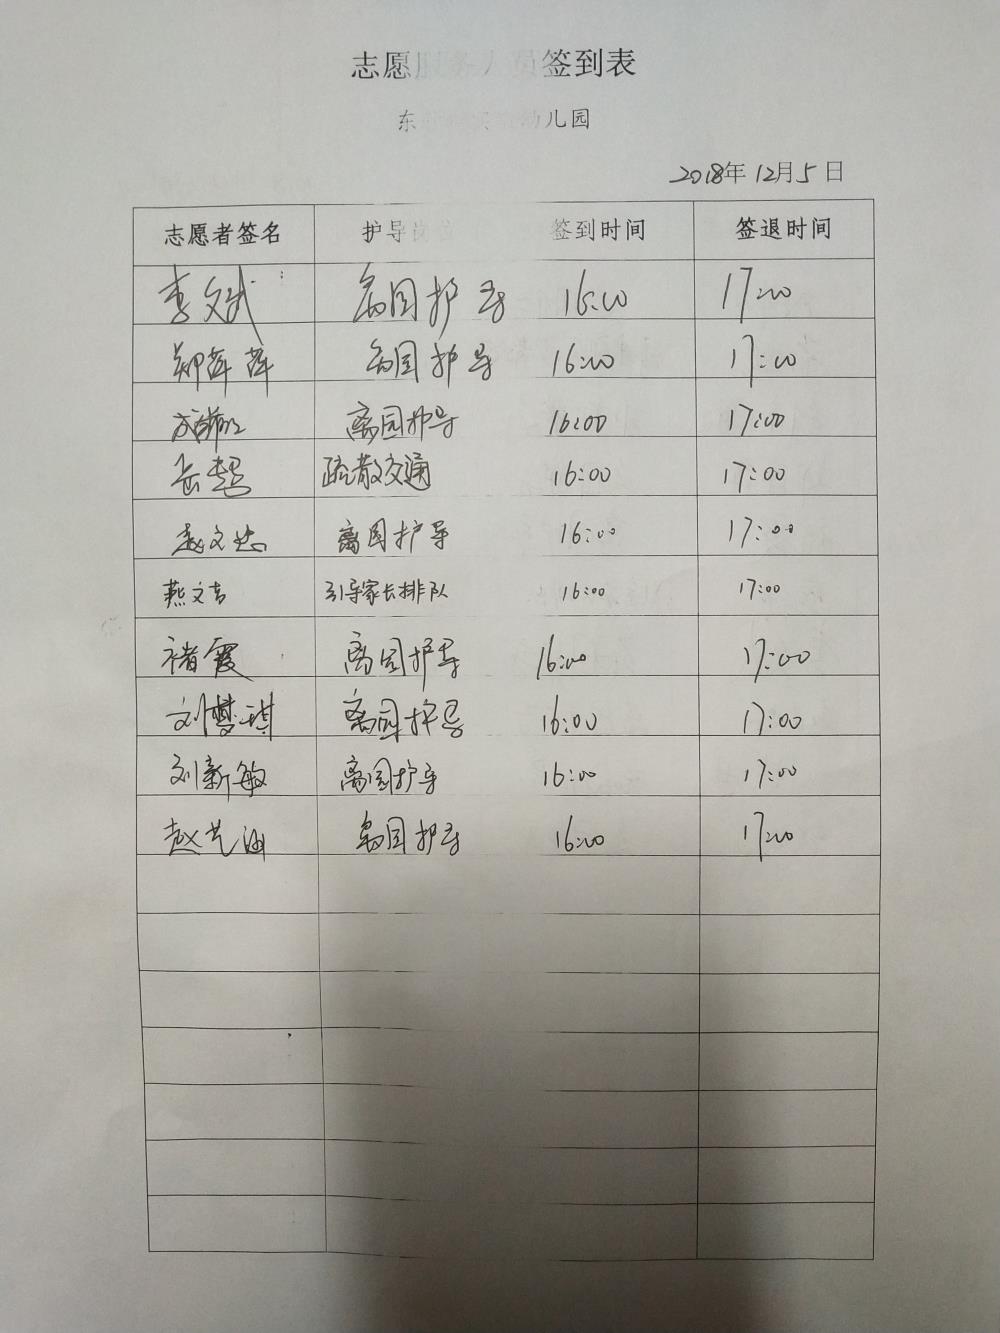 志愿服务人员签到表
东 幼儿园
2018年12月5日
志愿者签名 护导岗位 签到时间 签退时间
李文武 离园护导 16:00 17:00
郑萍萍 离园护导 16:00 17:00
离园护导 16:00 17:00
疏散交通 16:00 17:00
赵文忠 离园护导 16:00 17:00
燕文吉 引导家长排队 16:00 17:00
褚霞 离园护导 16:00 17:00
刘梦琪 离园护导 16:00 17:00
刘新敏 离园护导 16:00 17:00
赵艺涵 离园护导 16:00 17:00